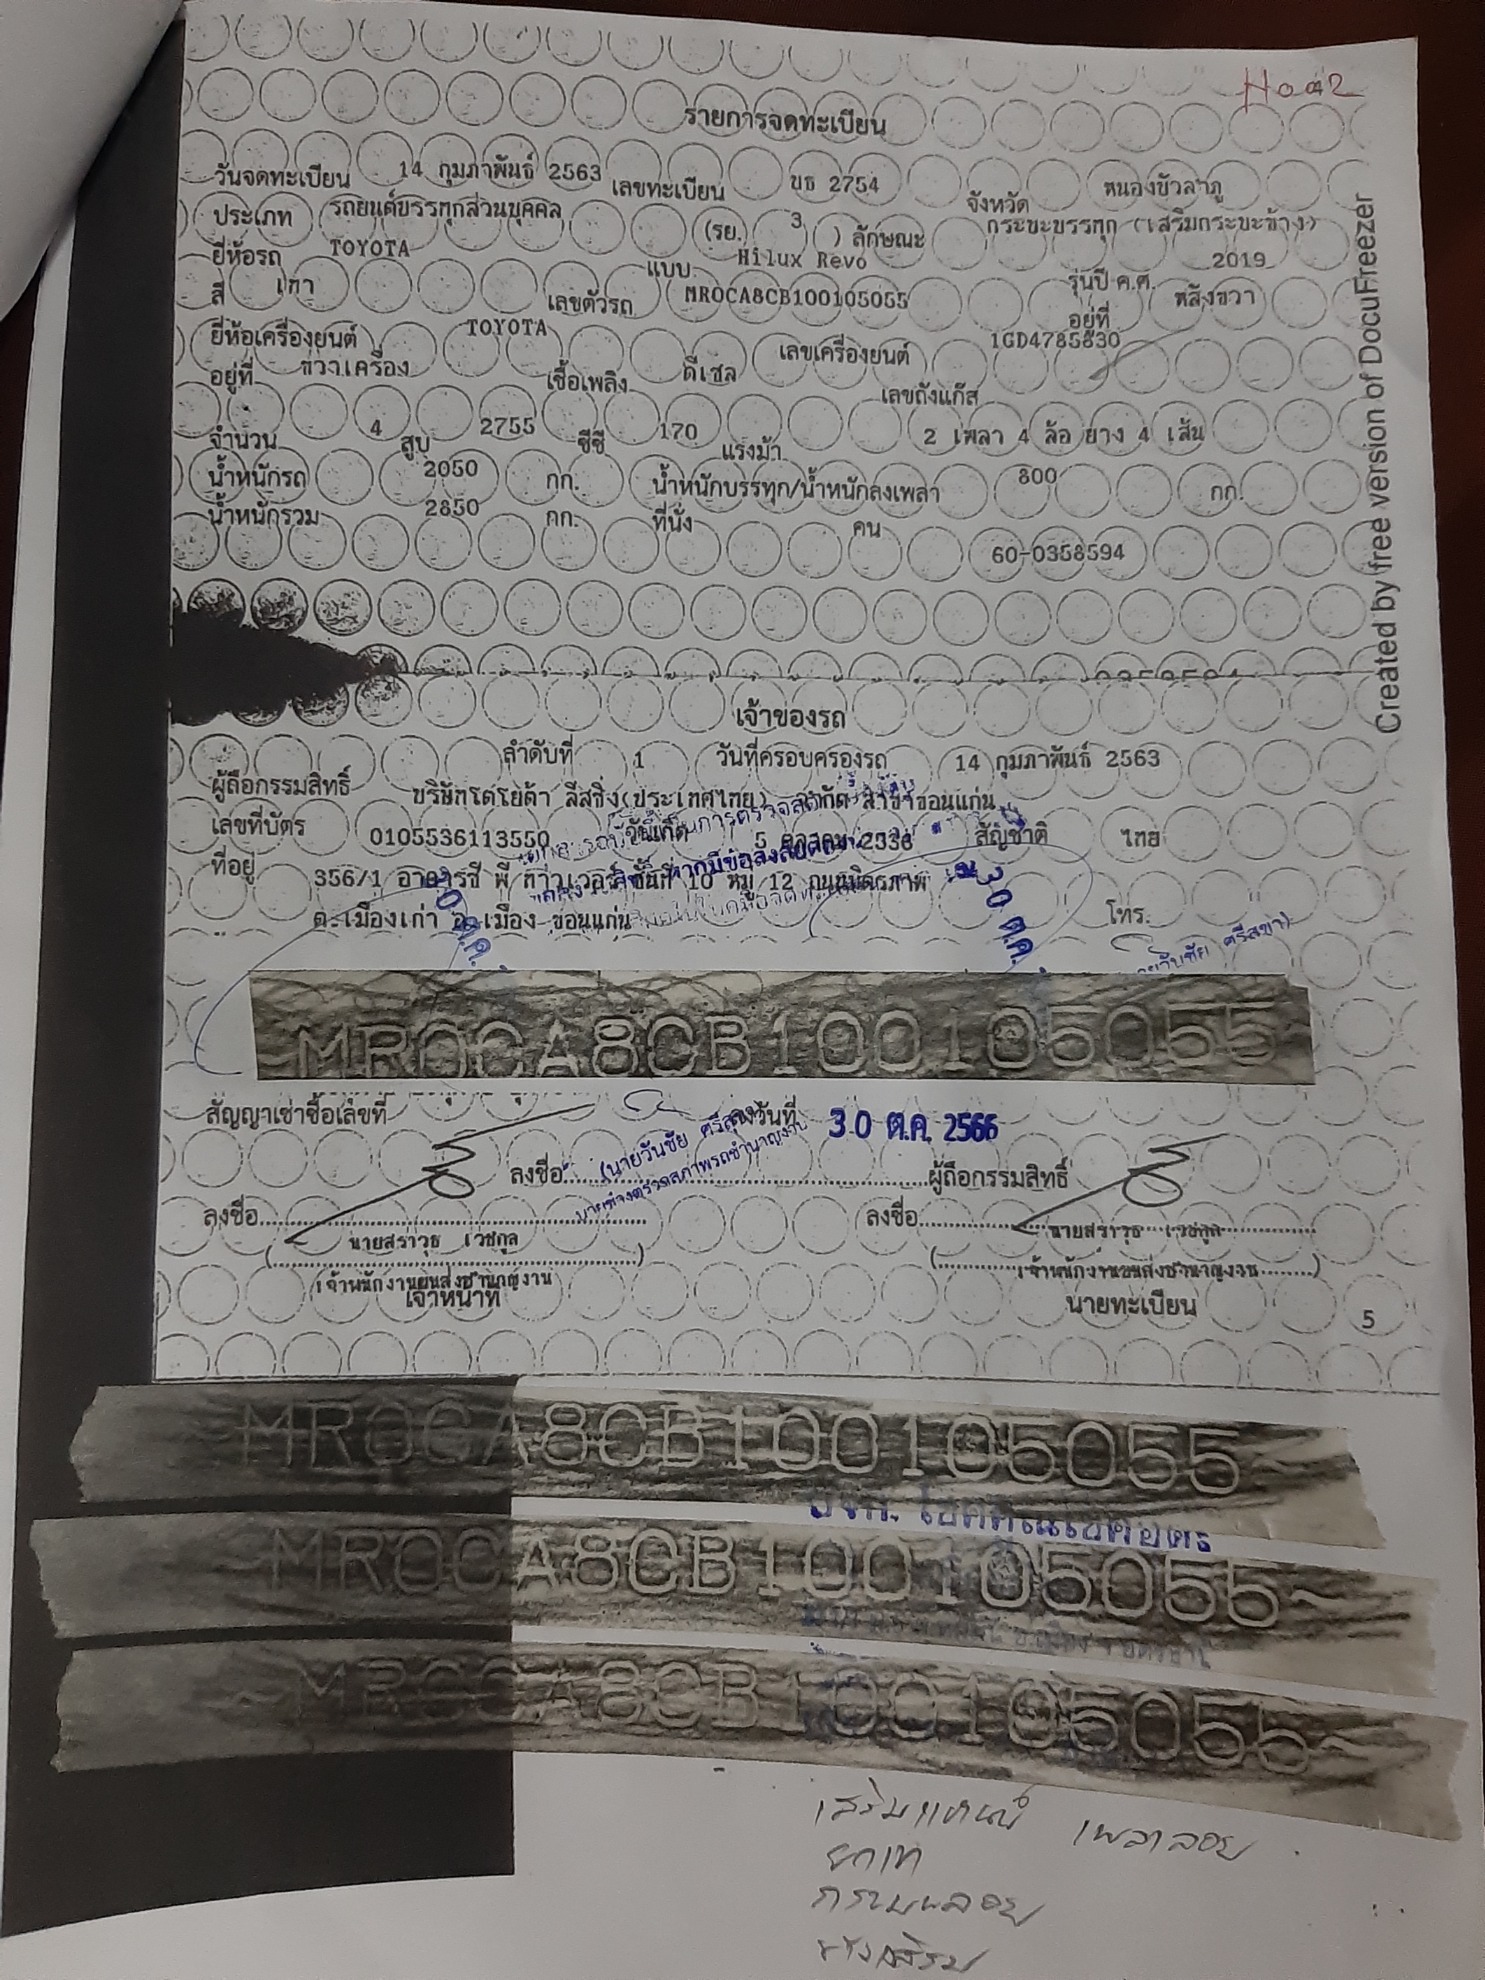 Hoo2
รายการจดทะเบียน
วันจดทะเบียน 14 กุมภาพันธ์ 2563 เลขทะเบียน บธ 2754 จังหวัด หนองบัวลำภู
ประเภท รถยนต์บรรทุกส่วนบุคคล (รย. 3 ) ลักษณะ กระบะบรรทุก (เสริมกระบะข้าง)
ยี่ห้อรถ TOYOTA แบบ Hilux Revo รุ่นปี ค.ศ. 2019
สี เทา เลขตัวรถ MR0CA8CB100105055 อยู่ที่ หลังขวา
ยี่ห้อเครื่องยนต์ TOYOTA เลขเครื่องยนต์ 1GD4785830
อยู่ที่ ขวาเครื่อง เชื้อเพลิง ดีเซล เลขถังแก๊ส
จำนวน 4 สูบ 2755 ซีซี 170 แรงม้า 2 เพลา 4 ล้อ ยาง 4 เส้น
น้ำหนักรถ 2050 กก. น้ำหนักบรรทุก/น้ำหนักลงเพลา 800 กก.
น้ำหนักรวม 2850 กก. ที่นั่ง คน
60-0358594
Created by free version of DocuFreezer
เจ้าของรถ
ลำดับที่ 1 วันที่ครอบครองรถ 14 กุมภาพันธ์ 2563
ผู้ถือกรรมสิทธิ์ บริษัทโตโยต้า ลีสซิ่ง(ประเทศไทย) จำกัด สาขาขอนแก่น
เลขที่บัตร 0105536113550 วันเกิด 5 ตุลาคม 2336 สัญชาติ ไทย
ที่อยู่ 356/1 อาคารซี พี ทาวเวอร์ ชั้นที่ 10 หมู่ 12 ถนนมิตรภาพ
ต.เมืองเก่า อ.เมือง ขอนแก่น โทร.
30 ต.ค. 30 ต.ค.
นายวันชัย ศรีสุขา)
MR0CA8CB100105055
สัญญาเช่าซื้อเลขที่ ลงวันที่ 30 ต.ค. 2566
(นายวันชัย ศรีสุขา)
นายช่างตรวจสภาพรถชำนาญงาน
ลงชื่อ ผู้ถือกรรมสิทธิ์
ลงชื่อ ลงชื่อ
( นายสราวุธ เวชกุล ) ( นายสราวุธ เวชกุล )
เจ้าพนักงานขนส่งชำนาญงาน เจ้าพนักงานขนส่งชำนาญงาน
เจ้าหน้าที่ นายทะเบียน
5
MR0CA8CB100105055
MR0CA8CB100105055
MR0CA8CB100105055
เสริมแหนบ เพลาลอย
ยกเท